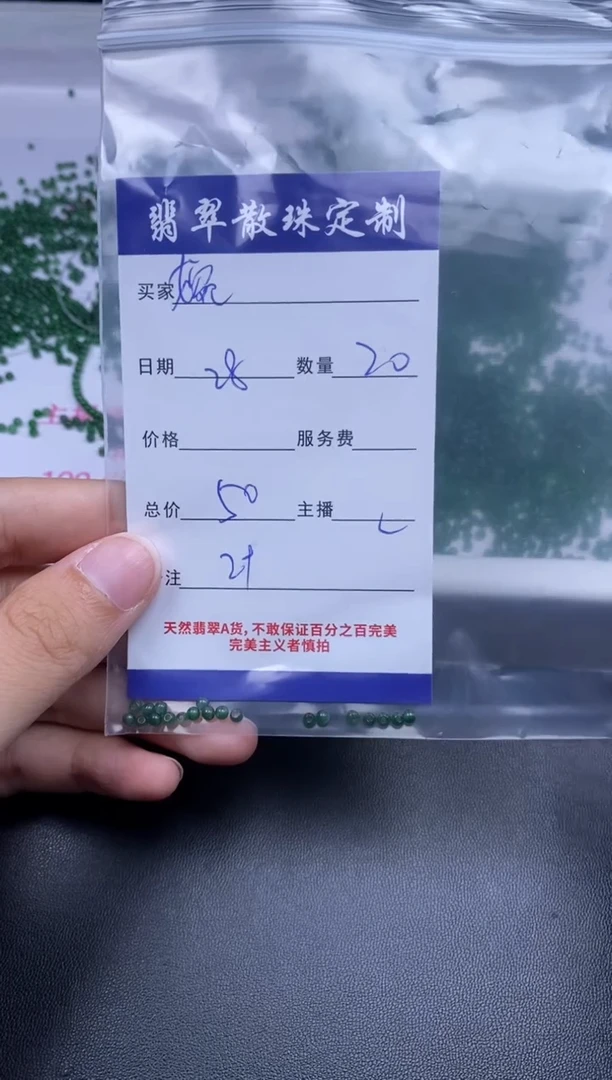 翡翠散珠定制
买家
日期 28 数量 20
价格 服务费
总价 50 主播 L
注 21
天然翡翠A货,不敢保证百分之百完美
完美主义者慎拍